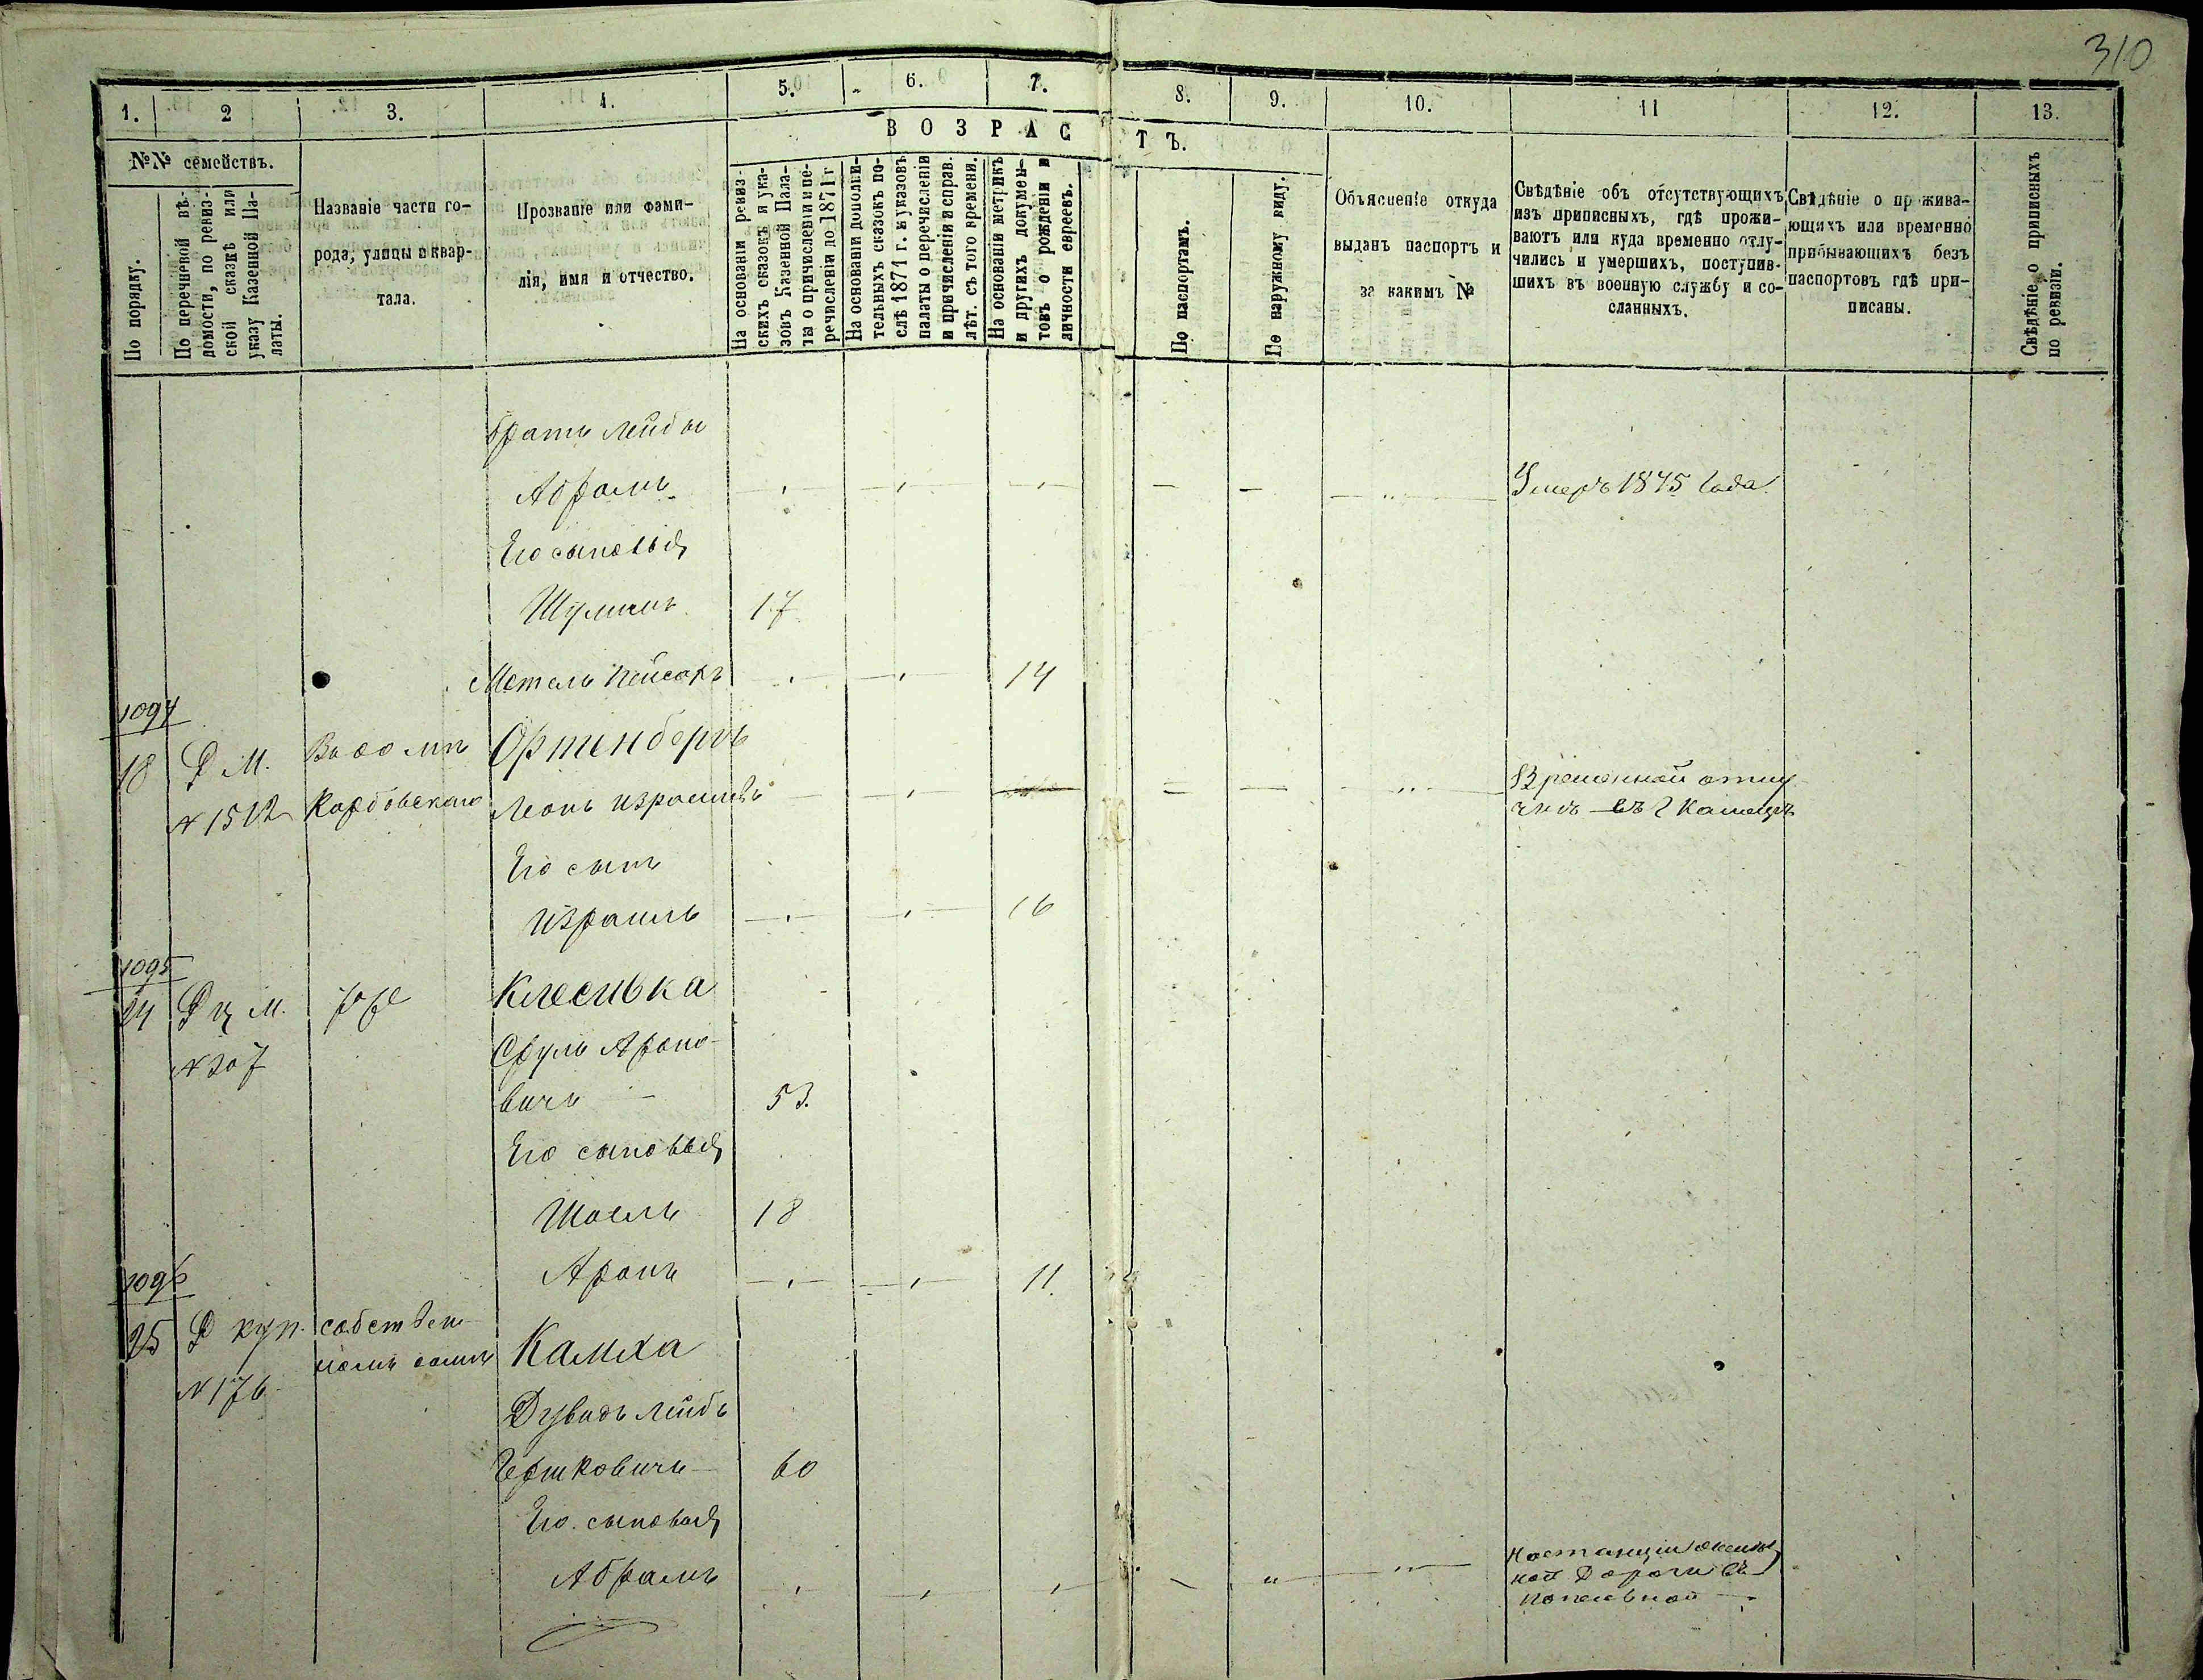 310
1. 2 3. 4. 5. 6. 7. 8. 9. 10. 11 12. 13.
№№ семействъ.
По порядку.
По перечневой вѣ-
домости, по ревиз-
ской сказкѣ или
указу Казенной Па-
латы.
Названіе части го-
рода, улицы и квар-
тала.
Прозваніе или фами-
лія, имя и отчество.
ВОЗРАСТЪ.
На основаніи ревиз-
скихъ сказокъ и ука-
зовъ Казенной Пала-
ты о причисленіи и пе-
речисленіи до 1871 г.
На основаніи дополни-
тельныхъ сказокъ по-
слѣ 1871 г. и указовъ
палаты о перечисленіи
и причисленіи и справ.
лѣт. съ того времени.
На основаніи метрикъ
и другихъ докумен-
товъ о рожденіи и
личности евреевъ.
По паспортамъ.
По наружному виду.
Объясненіе откуда
выданъ паспортъ и
за какимъ №
Свѣдѣніе объ отсутствующихъ
изъ приписныхъ, гдѣ прожи-
ваютъ или куда временно отлу-
чились и умершихъ, поступив-
шихъ въ военную службу и со-
сланныхъ.
Свѣдѣніе о прожива-
ющихъ или временно
прибывающихъ безъ
паспортовъ гдѣ при-
писаны.
Свѣдѣніе о приписныхъ
по ревизіи.
Братъ Лейбы
Абрамъ Умеръ 1875 года
Его сыновья
Шулимъ 17
Мотель Пейсахъ 14
1094
18 Р М. Въ домѣ Ортенбергъ
№ 1512 Корбовскаго Леонъ Израилевъ
Временной отлу-
чкѣ въ г Каменцѣ
Его сынъ
Израиль 16
1095
24 Р ц М. Клесилька
№ 307 Сруль Ароно-
вичъ 53.
Его сыновья
Шоель 18
Аронъ 11.
1096
25 Р куп. собствен-
номъ домѣ Камха
№ 176
Дувидъ Лейбъ
Гершковичъ 60
Его сыновья
Абрамъ
На станціи желѣз
ной Дороги въ
Попельной